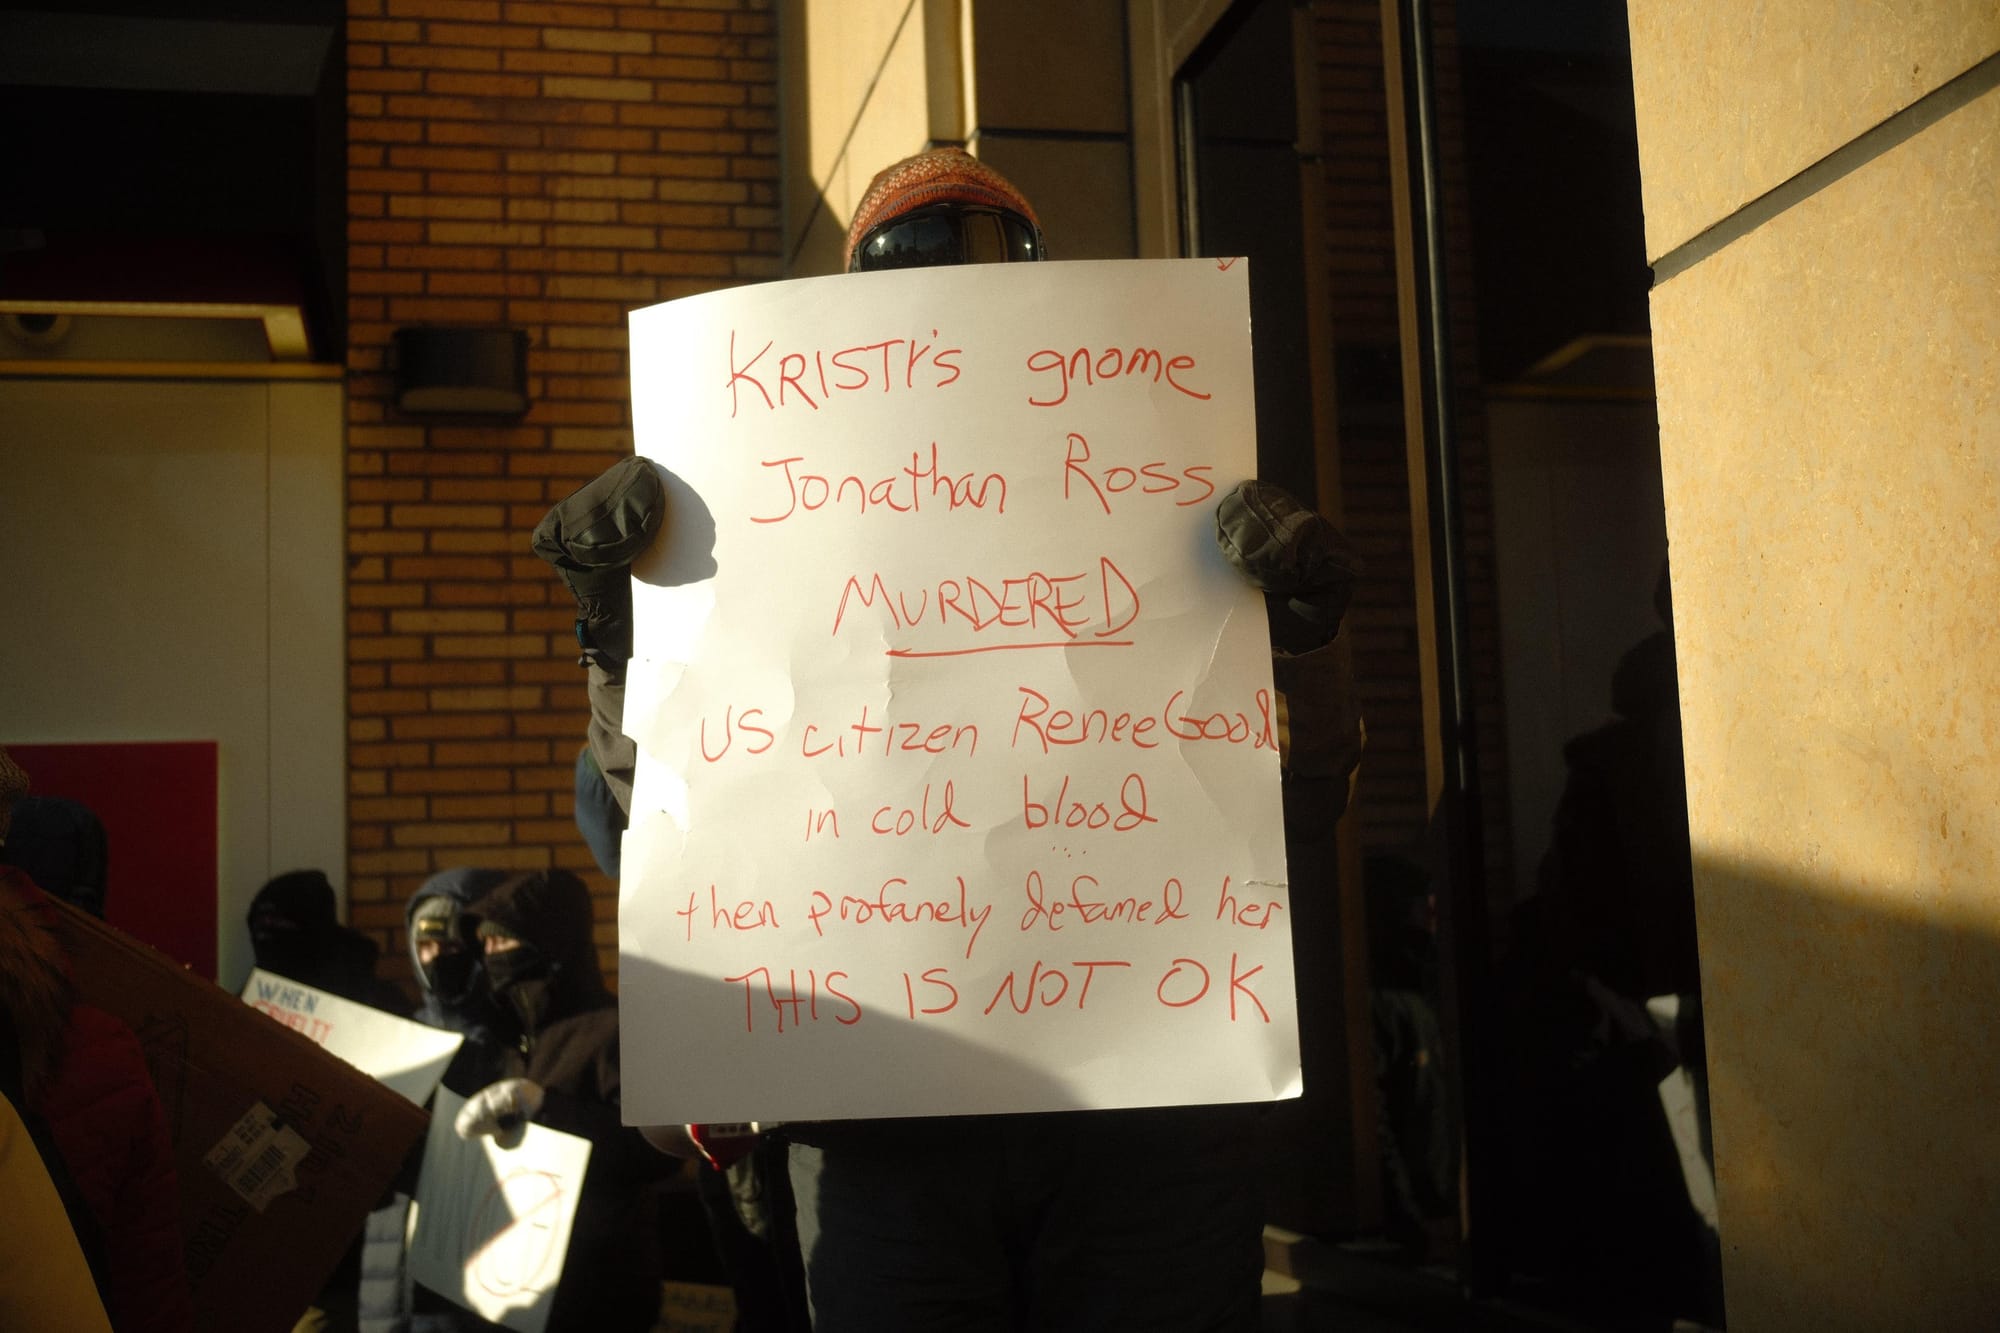 KRISTI'S gnome
Jonathan Ross
MURDERED
US citizen Renee Good
in cold blood
....
then profanely defamed her
THIS IS NOT OK
WHEN
CRUELTY